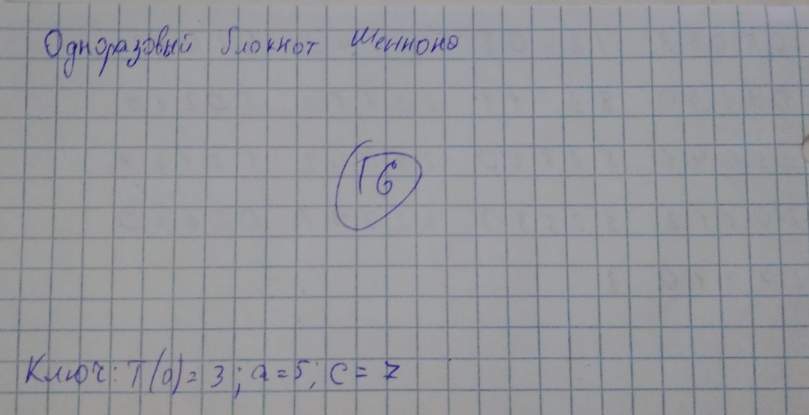 Одноразовый блокнот Шеннона
Г6
Ключ: T(0)=3; a=5; c=7